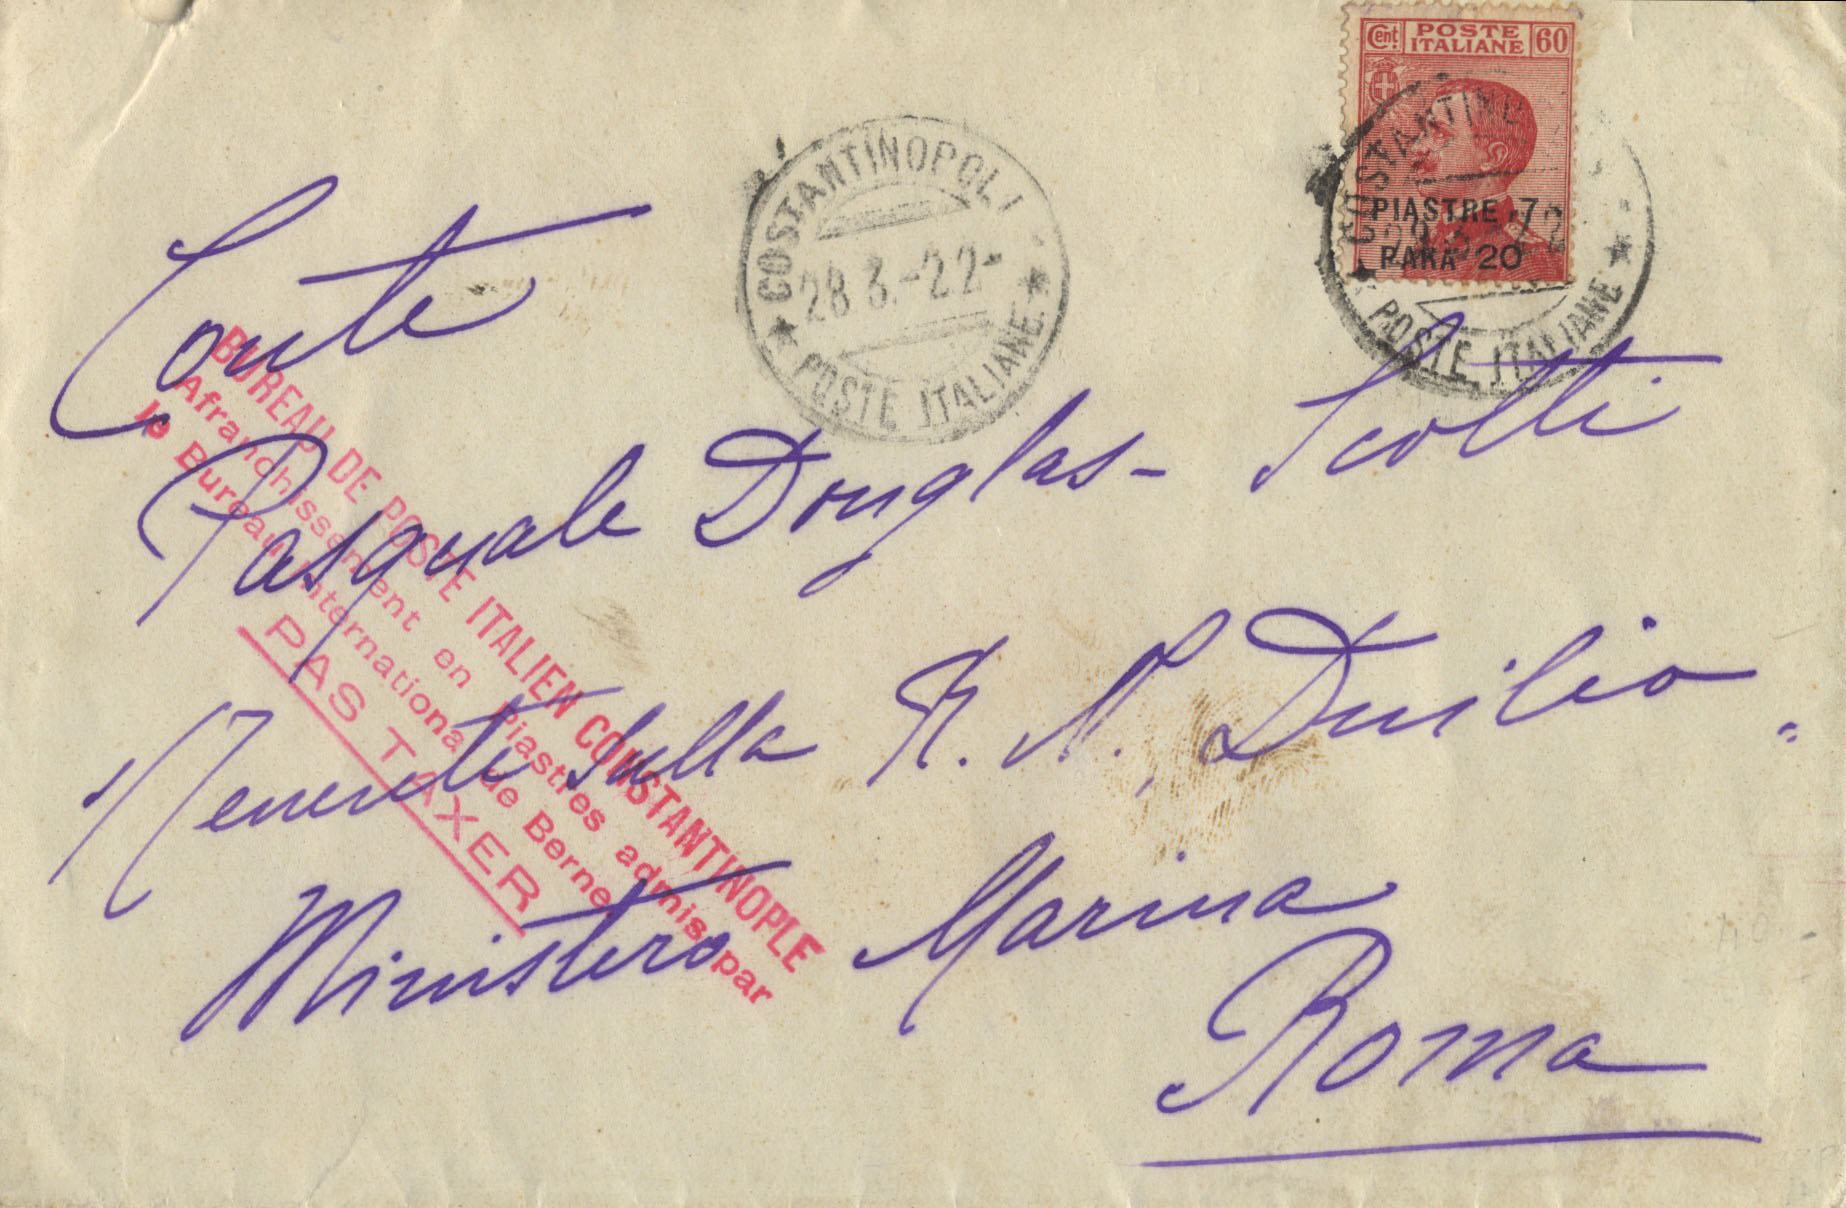 Cent. POSTE ITALIANE 60
PIASTRE 7
PARA 20
COSTANTINOPOLI
28 3.-22-
★ POSTE ITALIANE. ★
COSTANTINO
22
★ POSTE ITALIANE ★
Conte
Pasquale Douglas-Scotti
Tenente sulla R. N. Duilio
Ministero Marina
Roma
BUREAU DE POSTE ITALIEN CONSTANTINOPLE
Afranchissement en Piastres admis par
le Bureau International de Berne.
PAS TAXER